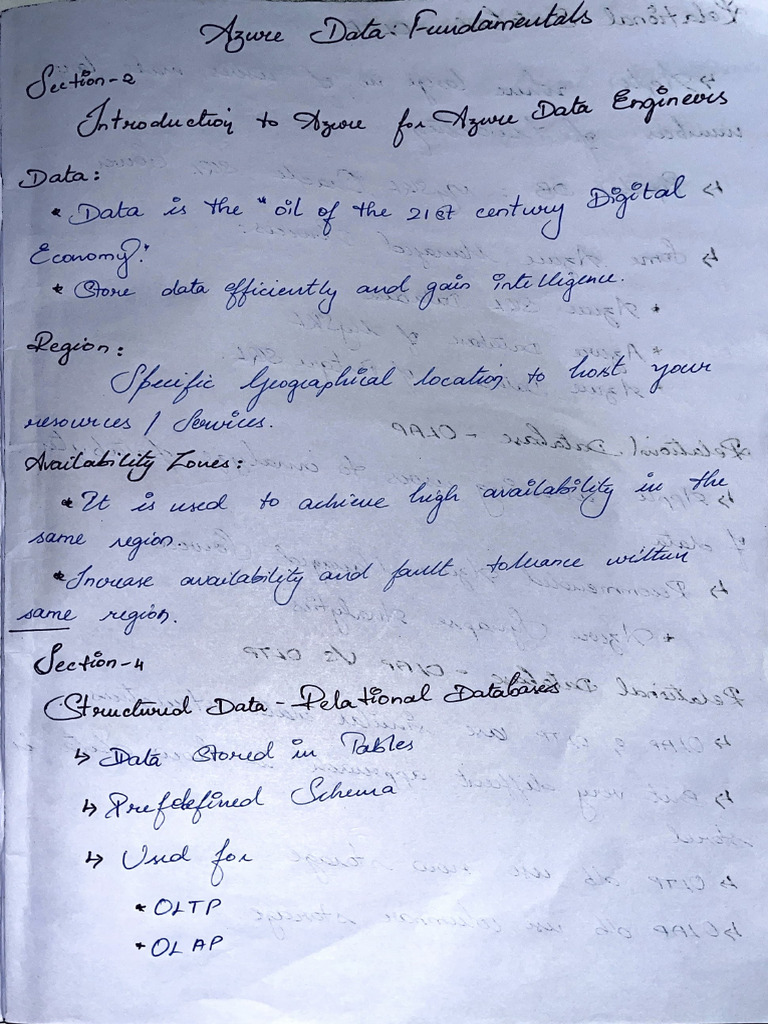 Azure Data Fundamentals
Section-2
Introduction to Azure for Azure Data Engineers
Data:
* Data is the "oil of the 21st century Digital
Economy."
* Store data efficiently and gain intelligence.
Region:
Specific Geographical location to host your
resources / Services.
Availability Zones:
* It is used to achieve high availability in the
same region.
* Increase availability and fault tolerance within
same region.
Section-4
Structured Data - Relational Databases
↳ Data Stored in Tables
↳ Prefdefined Schema
↳ Used for
* OLTP
* OLAP